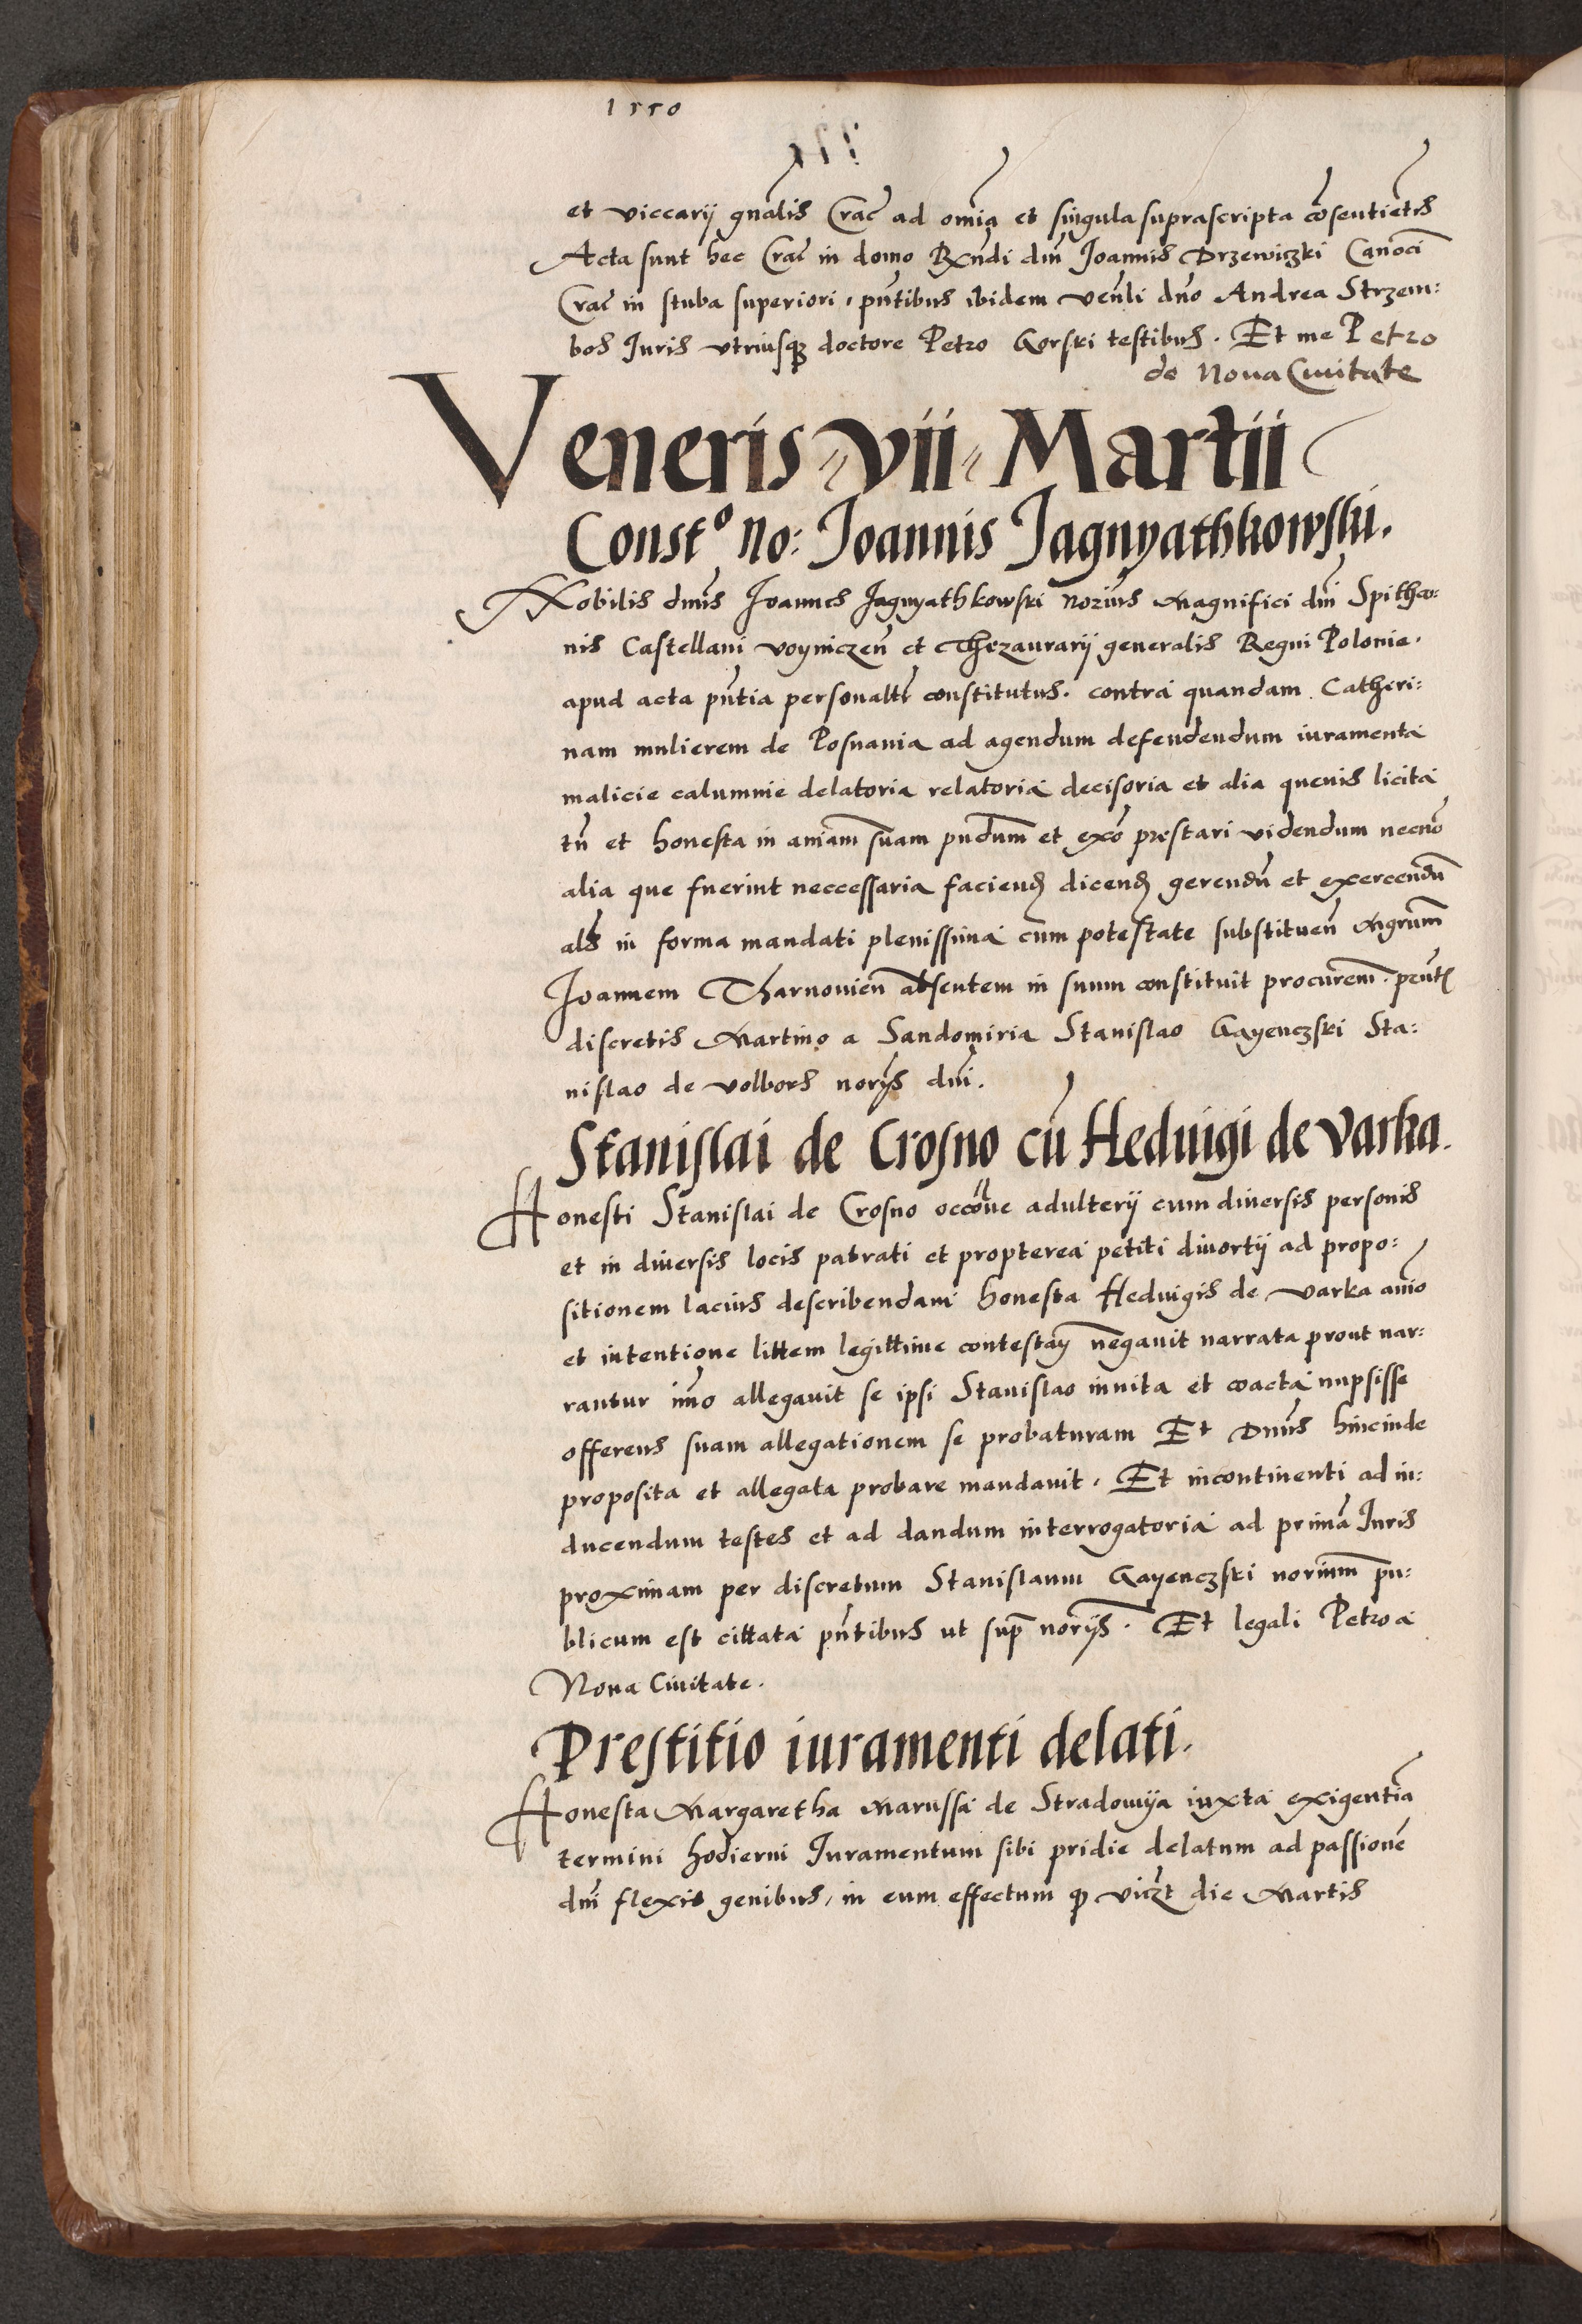 1550
et viccarij gnalis Crac ad omia et singula suprascripta cosentietes
Acta sunt hec Crac in domo Rndi dni Joannis Drzewiczki Canoci
Crac in stuba superiori, pntibus ibidem venli dno Andrea Strzem:
bos Juris vtriusq doctore Petro Gorski testibus. Et me Petro
de Noua Ciuitate
Veneris vii Martii
Consto No: Joannis Jagnyathkowski.
Nobilis dnus Joannes Jagnyathkowski Norius Magnifici dni Spitko:
nis Castellani voyniczen et Thezaurarij generalis Regni Polonie.
apud acta pntia personaltr constitutus. contra quandam Catheri:
nam mulierem de Posnania ad agendum defendendum iuramenta
malicie calumnie delatoria relatoria decisoria et alia queuis licita
tn et honesta in aniam suam pndum et exo prestari videndum necno
alia que fuerint neccessaria faciend dicend gerendu et exercendu
als in forma mandati plenissima cum potestate substituen Mgrum
Joannem Tharnouien absentem in suum constituit procurem. pntt
discretis Martino a Sandomiria Stanislao Gayenczski Sta:
nislao de volbors norijs dni.
Stanislai de Crosno cu Heduigi de Varka.
Honesti Stanislai de Crosno occone adulterij cum diuersis personis
et in diuersis locis patrati et propterea petiti diuortij ad propo:
sitionem lacius describendam honesta Heduigis de Varka anio
et intentione littem legittime contestan negauit narrata prout nar:
rantur imo allegauit se ipsi Stanislao inuita et coacta nupsisse
offerens suam allegationem se probaturam Et Dnus hincinde
proposita et allegata probare mandauit. Et incontinenti ad in:
ducendum testes et ad dandum interrogatoria ad prima Juris
proximam per discretum Stanislaum Gayenczski norium pu:
blicum est cittata pntibus ut sup norijs. Et legali Petro a
Noua Ciuitate.
Prestitio iuramenti delati.
Honesta Margaretha Marussa de Stradomya iuxta exigentia
termini hodierni Juramentum sibi pridie delatum ad passione
dni flexis genibus, in eum effectum q viczt die Martis